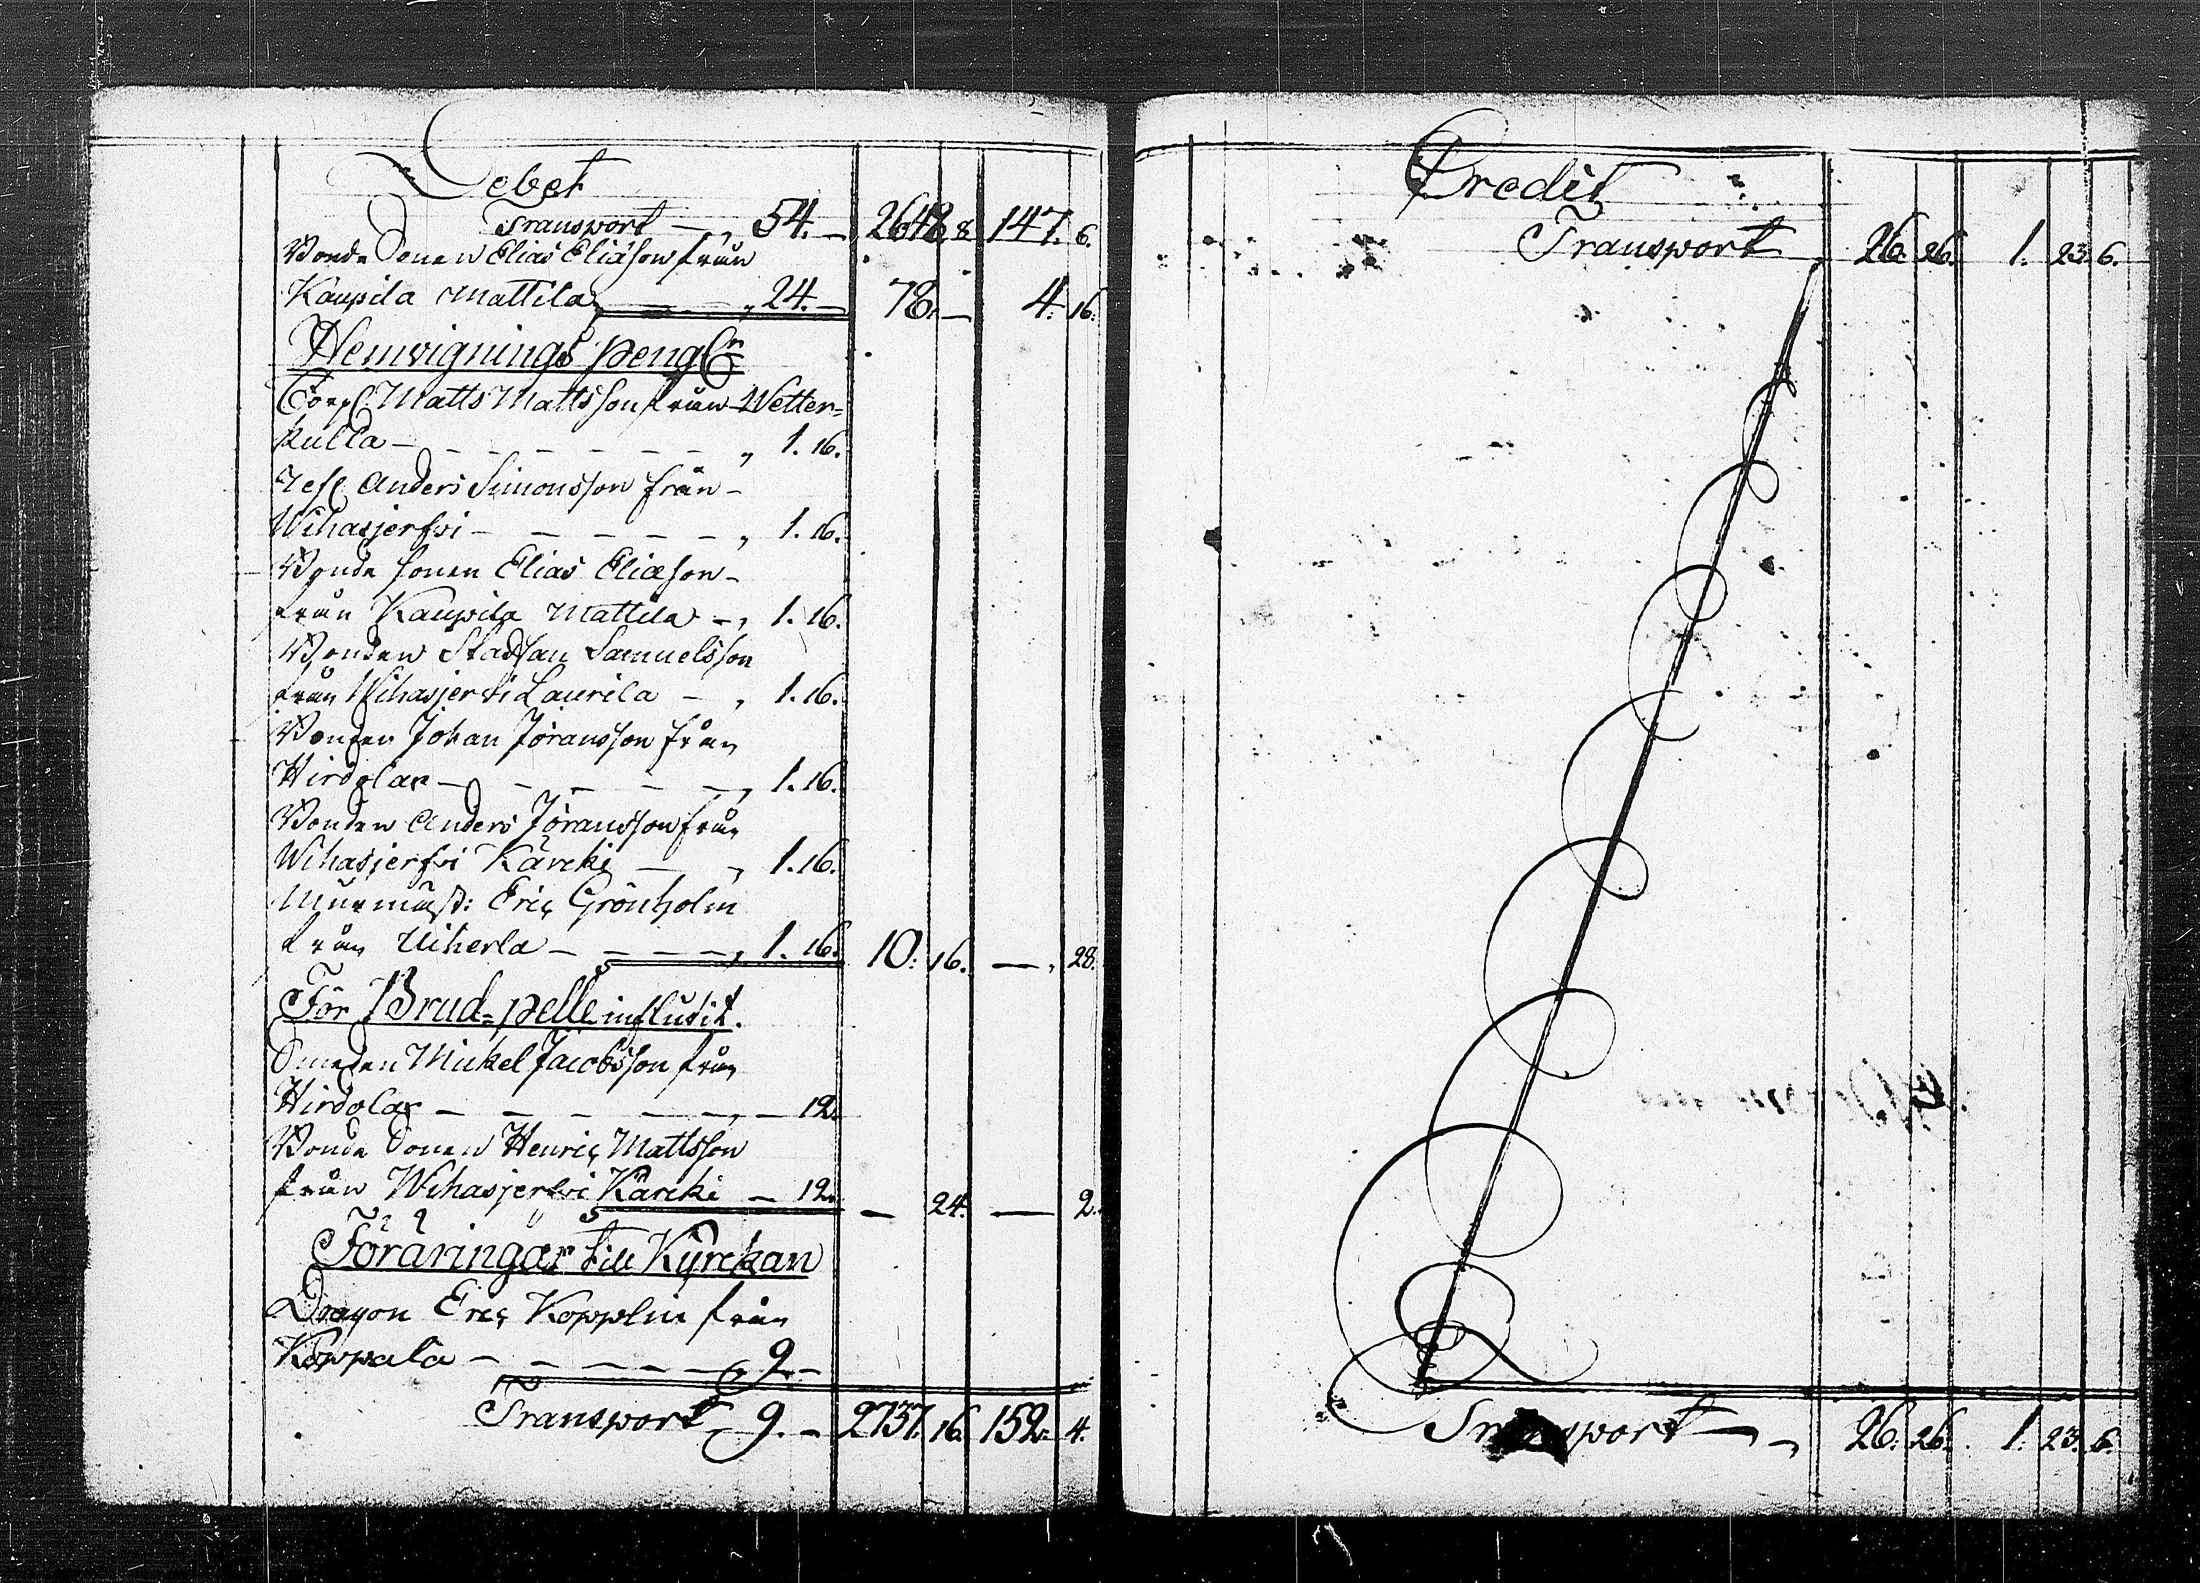 Debet
Transport — „ 54. — 2648. 8. 147. 6.
Bonde Sonen Elias Eliäson från
Kaupila Mattila — „ 24. — 78. — 4. 16.
Hemvignings peng&r
Corpl Matts Mattsson från Wetter=
kulla — — — — — — „ 1. 16.
Anders Simonsson från —
Wihasjerfvi — — — — — „ 1. 16.
Bonde Sonen Elias Eliæson —
från Kaupila Mattila — „ 1. 16.
Bonden Staffan Samuelsson
från Wihasjerfvi Laurila — „ 1. 16.
Bonden Johan Jöransson från
Hirdolax — — — — — „ 1. 16.
Bonden Anders Jöransson från
Wihasjerfvi Kärcki — „ 1. 16.
Murmäst: Eric Grönholm
från Uiherla — — — — „ 1. 16. 10. 16. — „ 28.
För Brud=pelle influtit.
Smeden Mickel Jacobsson från
Hirdolax — — — — — „ — 12.
Bonde Sonen Henric Mattsson
från Wihasjerfvi Kärcki — 12. — 24. — 2.
Föräringar till Kÿrckan
Dragon Eric Kopplin från
Koppala — — — — — „ 9. —
Transport „ 9. — 2737. 16. 152. 4.
Credit
Transport „ 26. 26. 1. 23. 6.
Transport — „ 26. 26. 1. 23. 6.